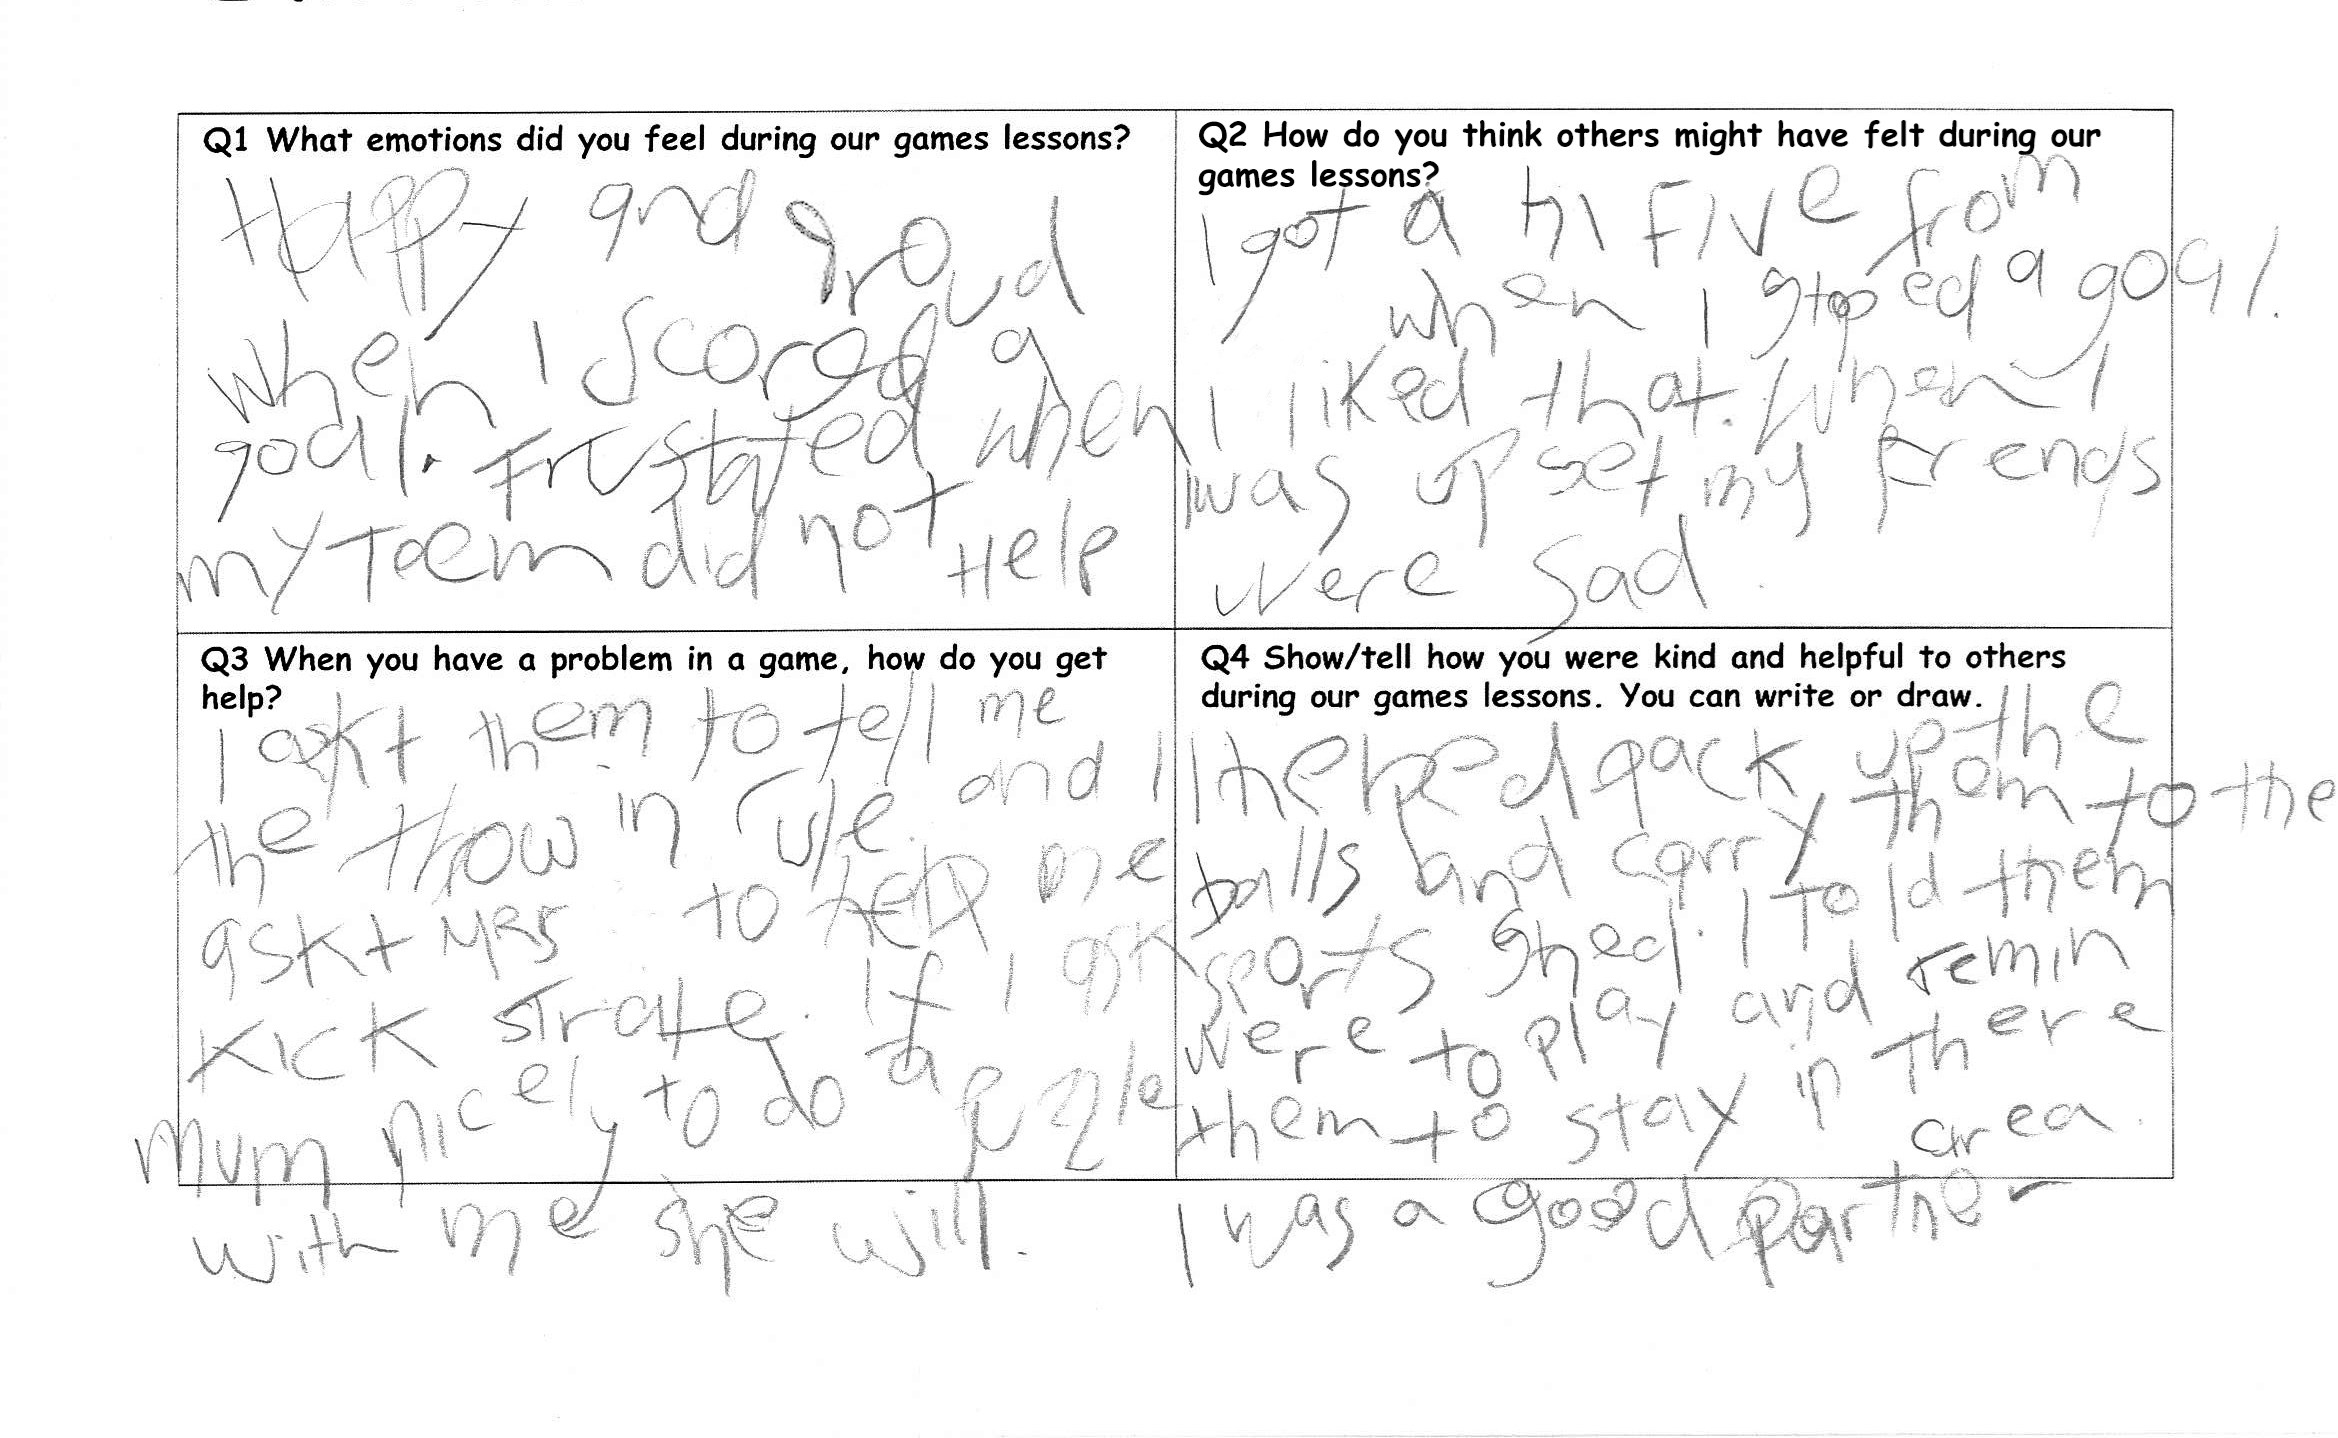 Q1 What emotions did you feel during our games lessons?
Happy and proud
when I scored a
goal. Frustated when
my Taem did not Help
Q2 How do you think others might have felt during our
games lessons?
I got a hi FIVE from
when I stoped a goal.
I liked that. When I
was upset my friends
were sad.
Q3 When you have a problem in a game, how do you get
help?
I askt them to tell me
the thow in rule. and I
askt MRS to help me
KICK strate. If I ask
Mum nicely to do a puzle
with me she will.
Q4 Show/tell how you were kind and helpful to others
during our games lessons. You can write or draw.
I helped pack up the
balls and carry them to the
sports shed. I told them
were to play and remin
them to stay in there
area.
I was a good partner